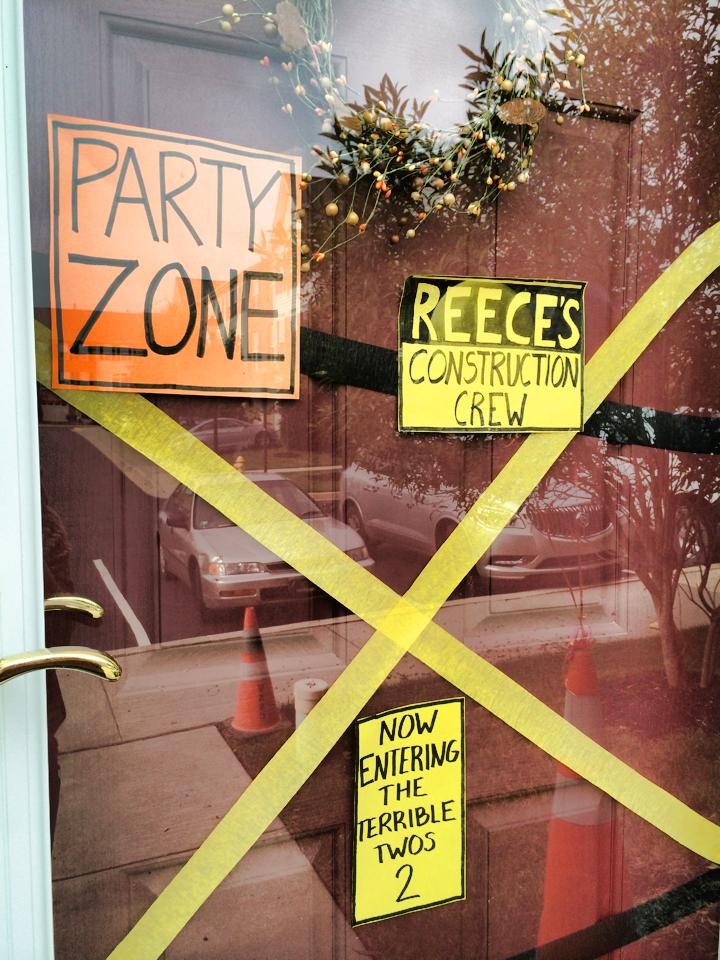 PARTY
ZONE
REECE'S
CONSTRUCTION
CREW
NOW
ENTERING
THE
TERRIBLE
TWOS
2